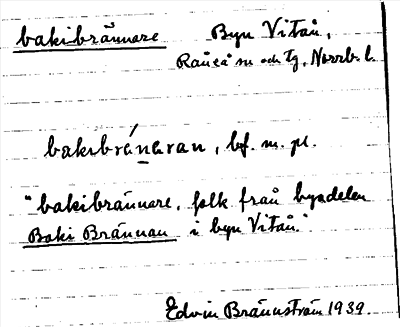 bakibrännare Byn Vitån,
Råneå sn och tg, Norrb. l.
bakibránaran, bf. m. pl.
"bakibrännare, folk från bysdelen
Baki Brännan i byn Vitån."
Edvin Brännström 1939.